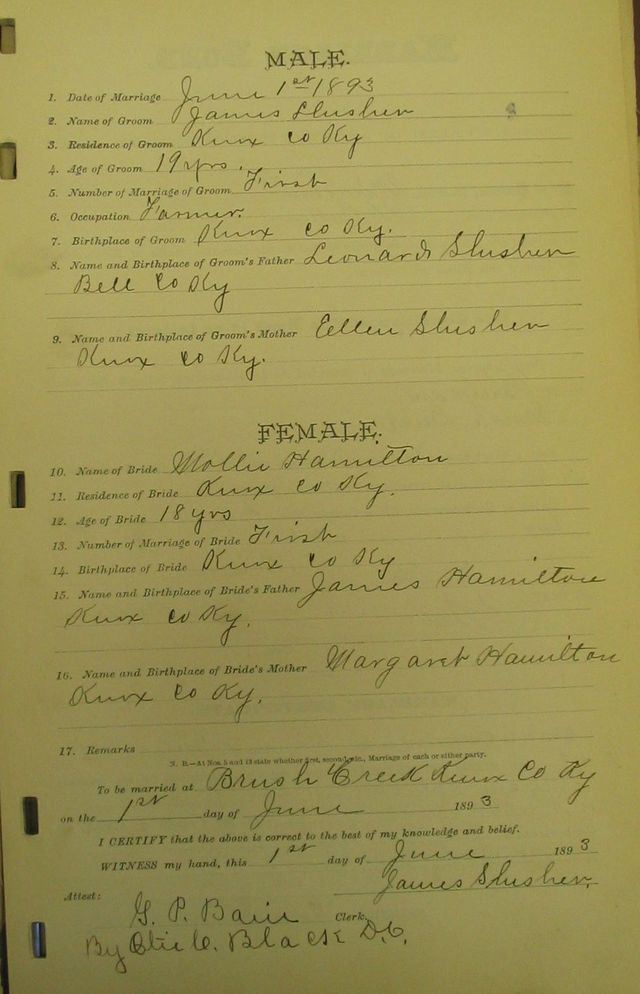 MALE.
1. Date of Marriage June 1st 1893
2. Name of Groom James Slusher
3. Residence of Groom Knox Co Ky
4. Age of Groom 19 yrs.
5. Number of Marriage of Groom First
6. Occupation Farmer.
7. Birthplace of Groom Knox Co Ky.
8. Name and Birthplace of Groom's Father Leonard Slusher
Bell Co Ky
9. Name and Birthplace of Groom's Mother Eellen Slusher
Knox Co Ky.
FEMALE.
10. Name of Bride Mollie Hamilton
11. Residence of Bride Knox Co Ky.
12. Age of Bride 18 yrs
13. Number of Marriage of Bride First
14. Birthplace of Bride Knox Co Ky
15. Name and Birthplace of Bride's Father James Hamilton
Knox Co Ky.
16. Name and Birthplace of Bride's Mother Margaret Hamilton
Knox Co Ky.
17. Remarks
N. B.—At Nos. 5 and 13 state whether first, second, etc., Marriage of each or either party.
To be married at Brush Creek Knox Co Ky
on the 1st day of June 1893
I CERTIFY that the above is correct to the best of my knowledge and belief.
WITNESS my hand, this 1st day of June 1893
James Slusher.
Attest:
G. P. Bain Clerk.
By C. Black D.C.